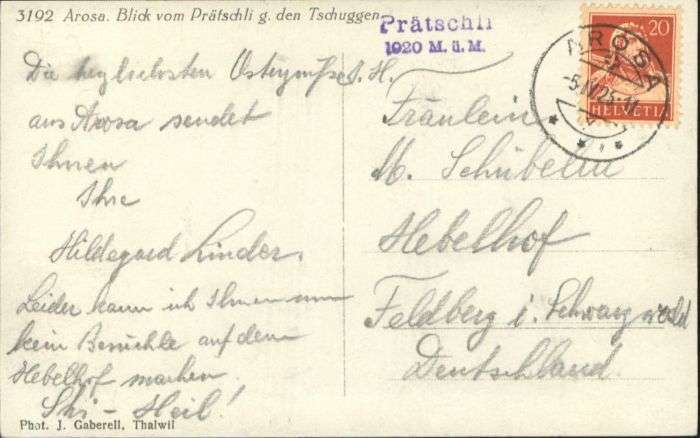 3192 Arosa. Blick vom Prätschli g. den Tschuggen.
Prätschli
1920 M. ü. M.
20
HELVETIA
AROSA
Die herzlichsten Ostergrüsse
aus Arosa sendet
Ihnen
Ihre
Hildegard Linder.
Leider kann ich Ihnen nun
kein Besuchle auf dem
Hebelhof machen.
Ski-Heil!
S. H.
Fräulein
M. Schübelin
Hebelhof
Feldberg i. Schwarzwald
Deutschland.
Phot. J. Gaberell, Thalwil